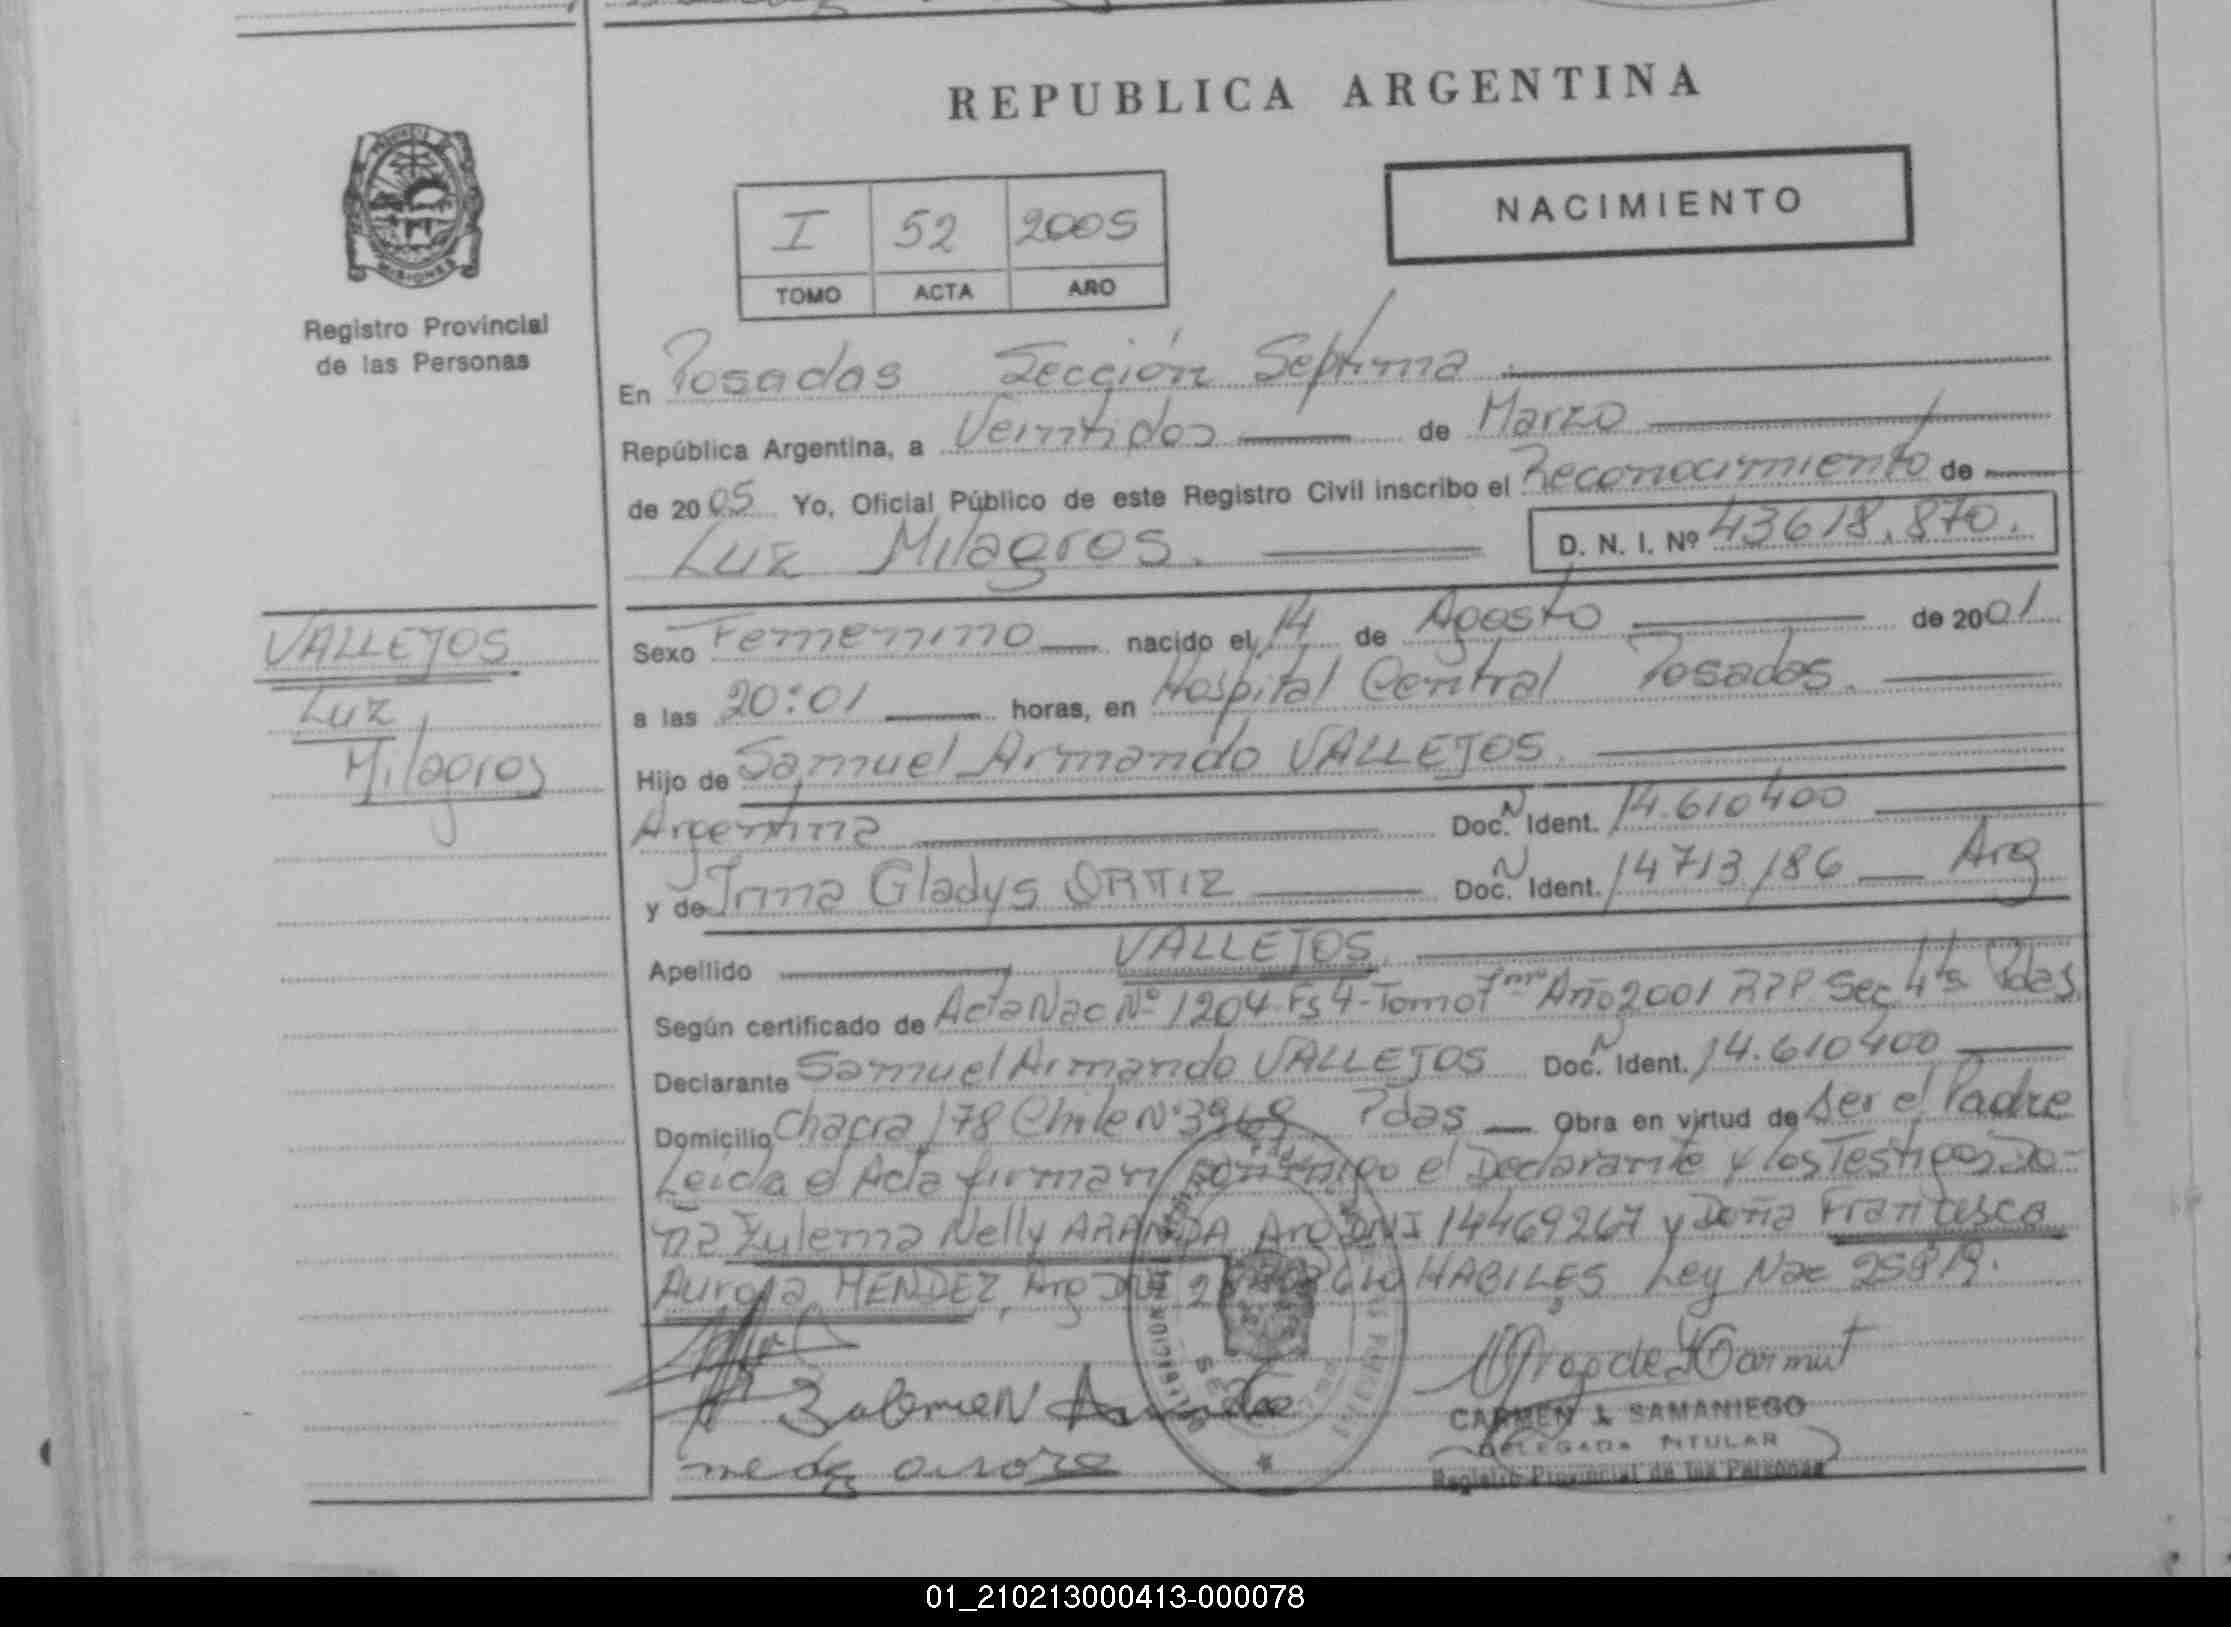 REPUBLICA ARGENTINA
NACIMIENTO
I 52 2005
TOMO ACTA AÑO
MISIONES
Registro Provincial
de las Personas
En Posadas Sección Septima
República Argentina, a Veintidos de Marzo
de 2005 Yo, Oficial Público de este Registro Civil inscribo el Reconocimiento de
Luz Milagros. D. N. I. Nº 43618.870.
VALLEJOS
Luz
Milagros
Sexo Femenino nacido el 14 de Agosto de 2001
a las 20:01 horas, en Hospital Central Posadas.
Hijo de Samuel Armando VALLEJOS.
Argentina Doc. N Ident. 14.610400
y de Irma Gladys ORTIZ Doc. N Ident. 14713186 Arg
Apellido VALLEJOS.
Según certificado de Acta Nac Nº 1204 Fs 4 - Tomo Año 2001 RPP. Sec 4ta Pdas
Declarante Samuel Armando VALLEJOS Doc. N Ident. 14.610400
Domicilio Chacra 178 Chile Nº Pdas Obra en virtud de ser el Padre
Leida el Acta firman conmigo el Declarante y los Testigos Do-
ña Zulema Nelly ARANDA Arg DNI 14469267 y Doña Francisca
Aurora MENDEZ, Arg DNI HABILES Ley Nac 25819.
CARMEN SAMANIEGO
DELEGADA TITULAR
Registro Provincial de las Personas
01_210213000413-000078